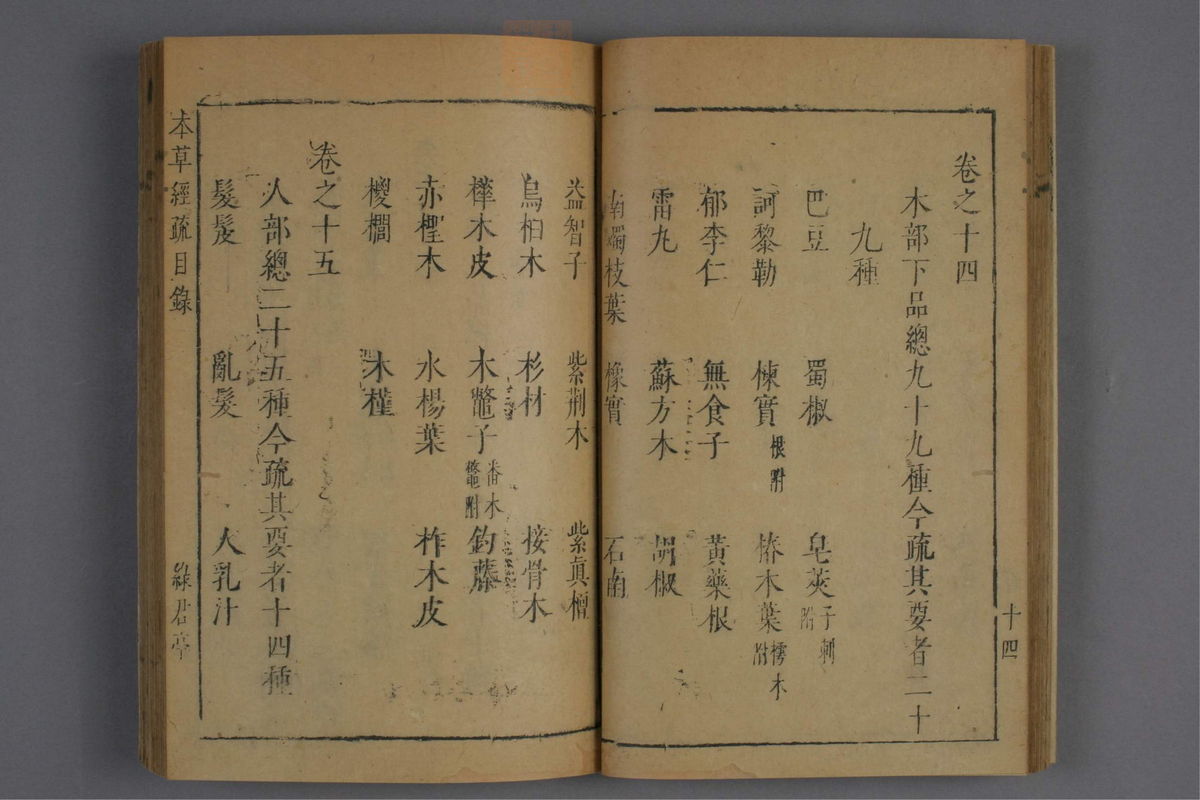 卷之十四
木部下品總九十九種今疏其要者二十
九種
巴豆 蜀椒 皂莢子刺附
訶黎勒 楝實根附 椿木葉樗木附
郁李仁 無食子 黃藥根
雷丸 蘇方木 胡椒
南燭枝葉 橡實 石南
十四
益智子 紫荆木 紫眞檀
烏桕木 杉材 接骨木
樺木皮 木鼈子番木鼈附 釣藤
赤檉木 水楊葉 柞木皮
椶櫚 木槿
卷之十五
人部總二十五種今疏其要者十四種
髮髲 亂髮 人乳汁
本草經疏目錄 綠君亭